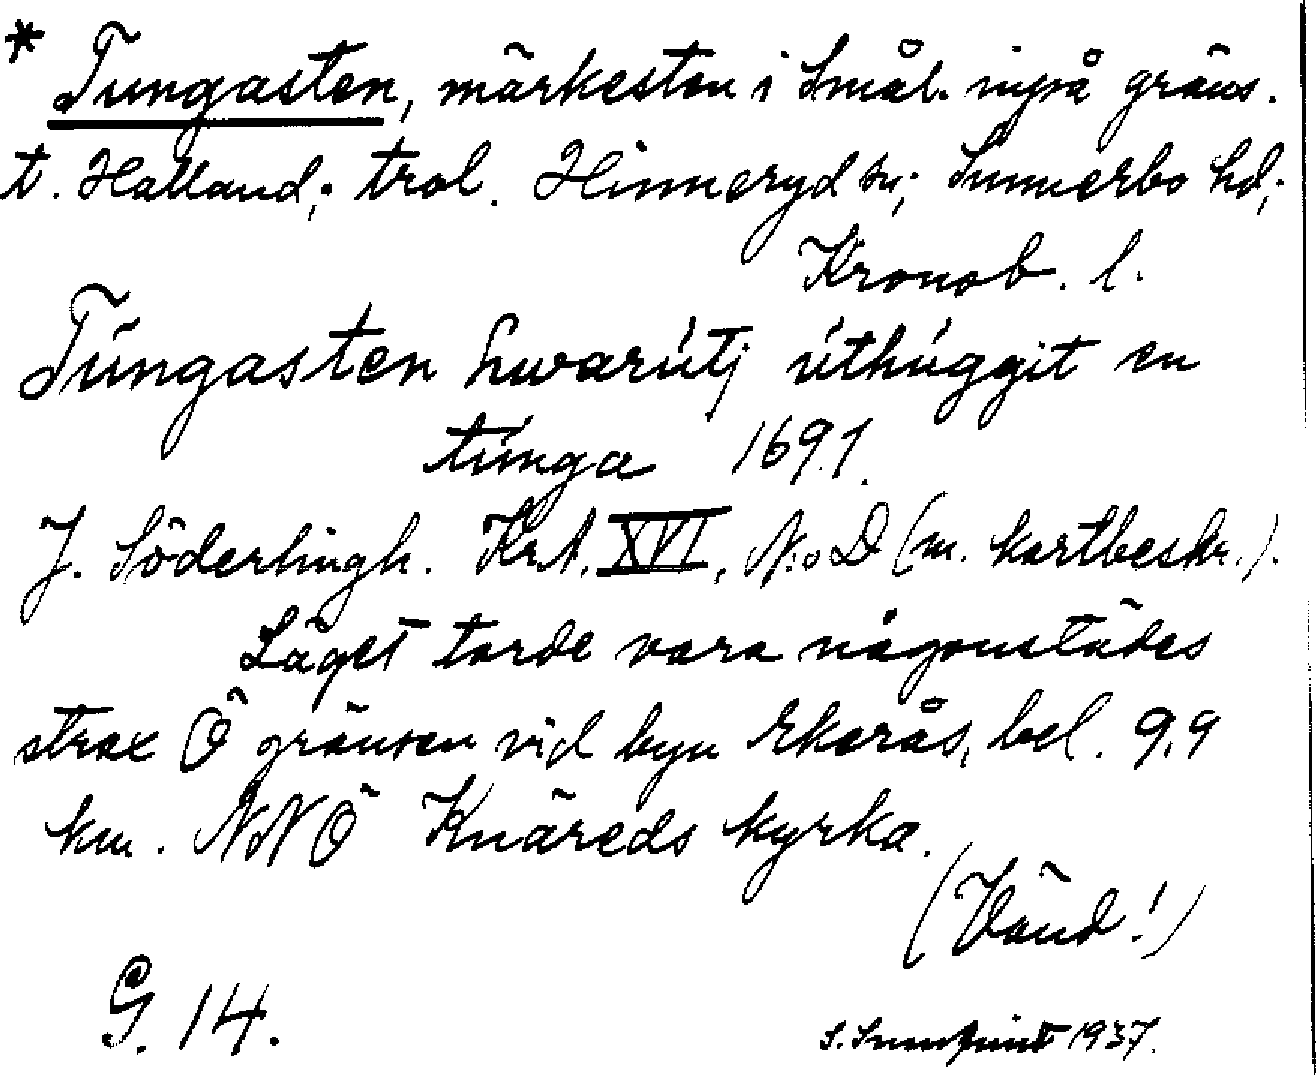 * Tungasten, märkesten i Smål. inpå gräns.
t. Halland; trol. Hinneryd sn; Sunnerbo hd;
Kronob. l.
Tungasten hwarutj uthuggit en
tunga 1691.
J. Söderlingh. Kr.A. XVI, N:o D (m. kartbeskr.).
Läget torde vara någonstädes
strax Ö gränsen vid byn Ekerås, bel. 9,9
km. NNÖ Knäreds kyrka.
(Vänd!)
G. 14.
S. 1937.